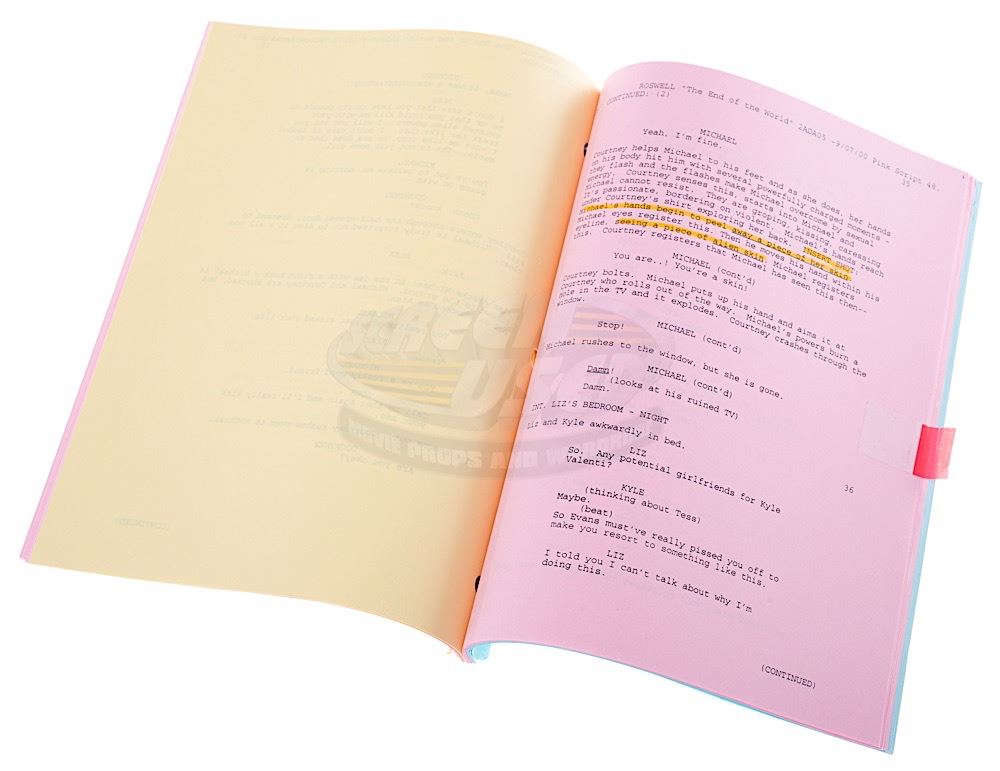 ROSWELL "The End of the World" 2ADA05 -9/07/00 Pink Script 48.
CONTINUED: (2) 35
MICHAEL
Yeah. I'm fine.
Courtney helps Michael to his feet and as she does, her hands
on his body hit him with several powerfully charged moments -
they flash and the flashes make Michael overcome by sexual
energy. Courtney senses this, starts into Michael and
Michael cannot resist. They are groping, kissing, caressing
It's passionate, bordering on violent, Michael's hands reach
under Courtney's shirt exploring her back. INSERT SHOT:
Michael's hands begin to peel away a piece of her skin
Michael eyes register this. Then he moves his hand within his
eyeline, seeing a piece of alien skin. Michael registers
this. Courtney registers that Michael has seen this then--
MICHAEL (cont'd)
You are..! You're a skin!
Courtney bolts. Michael puts up his hand and aims it at
Courtney who rolls out of the way. Michael's powers burn a
hole in the TV and it explodes. Courtney crashes through the
window.
MICHAEL (cont'd)
Stop!
Michael rushes to the window, but she is gone.
MICHAEL (cont'd)
Damn!
(looks at his ruined TV)
Damn.
INT. LIZ'S BEDROOM - NIGHT 36
Liz and Kyle awkwardly in bed.
LIZ
So. Any potential girlfriends for Kyle
Valenti?
KYLE
(thinking about Tess)
Maybe.
(beat)
So Evans must've really pissed you off to
make you resort to something like this.
LIZ
I told you I can't talk about why I'm
doing this.
(CONTINUED)
SCREEN
USED
MOVIE PROPS AND WARDROBE